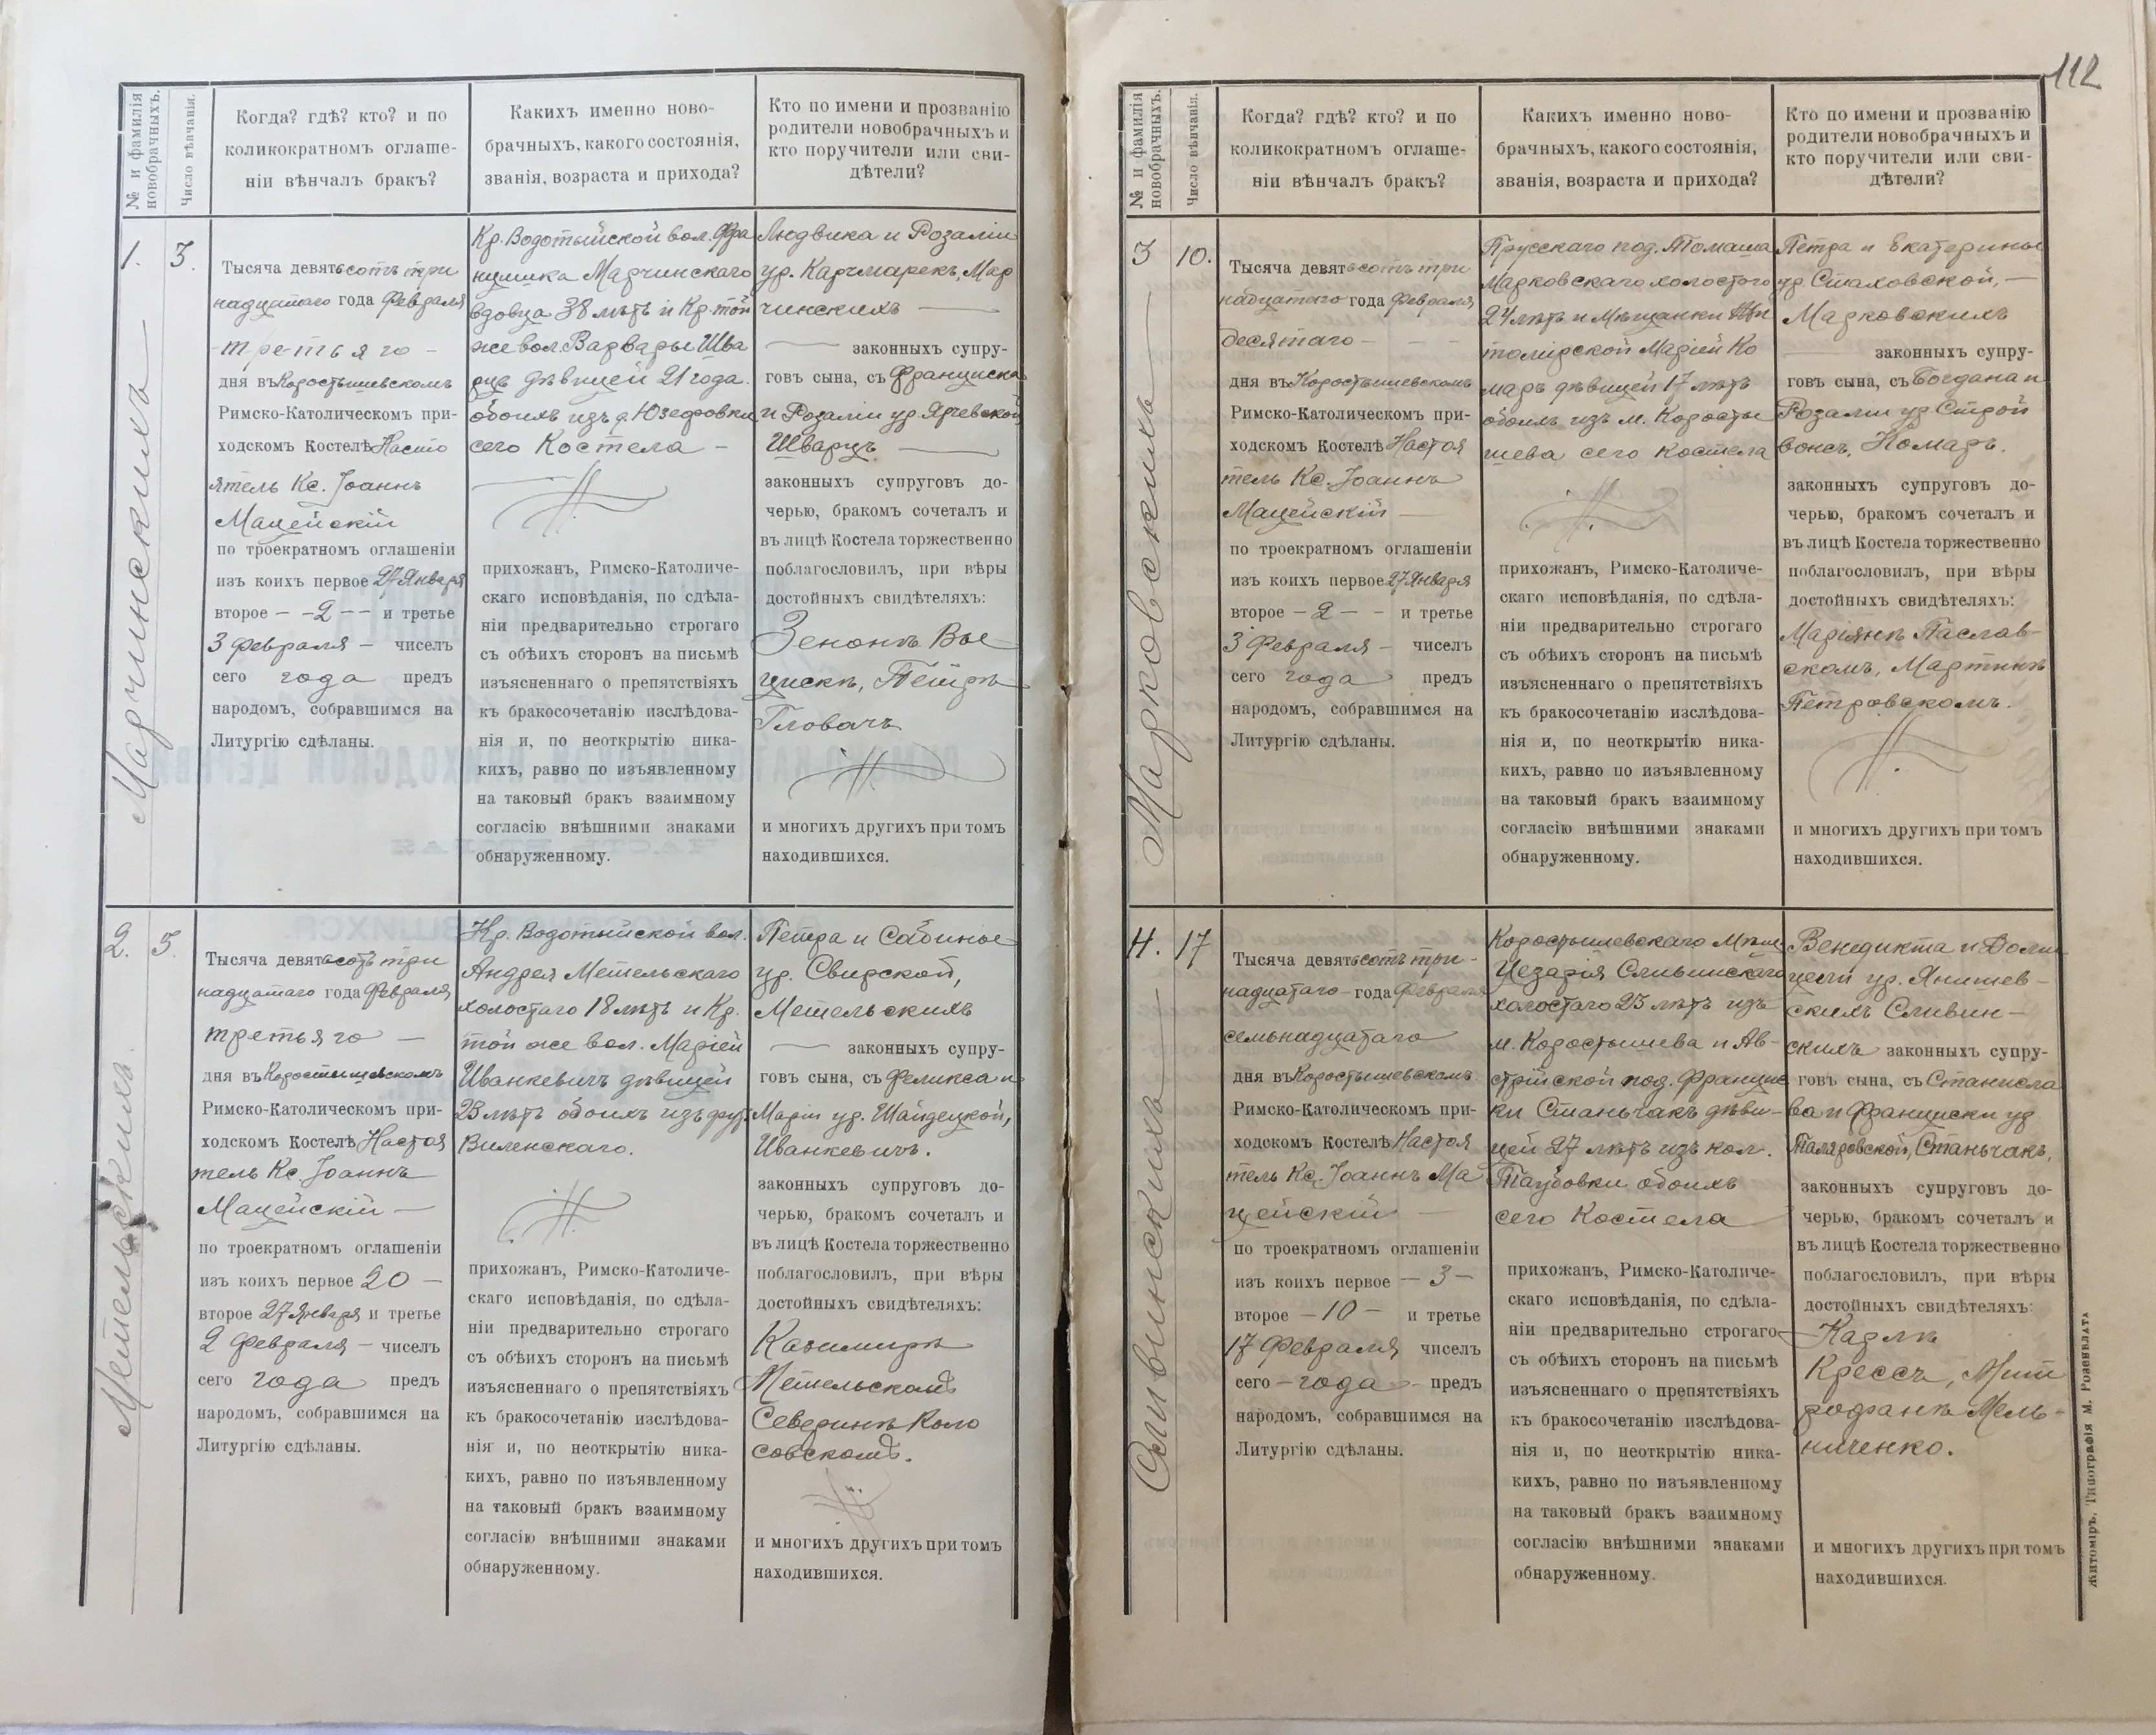 112
№ и фамилія новобрачныхъ.
Число вѣнчанія.
Когда? гдѣ? кто? и по
коликократномъ оглаше-
ніи вѣнчалъ бракъ?
Какихъ именно ново-
брачныхъ, какого состоянія,
званія, возраста и прихода?
Кто по имени и прозванію
родители новобрачныхъ и
кто поручители или сви-
дѣтели?
1.
3.
Марчинскихъ
Тысяча девятьсотъ три
надцатаго года Февраля
третьяго
дня въ Коростышевскомъ
Римско-Католическомъ при-
ходскомъ Костелѣ Насто
ятель Кс. Іоаннъ
Мацейскій
по троекратномъ оглашеніи
изъ коихъ первое 27 Января
второе - 2 - и третье
3 Февраля - чиселъ
сего года предъ
народомъ, собравшимся на
Литургію сдѣланы.
Кр. Водотыйской вол. Фра
нцишка Марчинскаго
вдовца 38 лѣтъ и Кр. той
же вол. Варвары Шва
рцъ дѣвицей 21 года.
обоихъ изъ д. Юзефовки
сего Костела -
прихожанъ, Римско-Католиче-
скаго исповѣданія, по сдѣла-
ніи предварительно строгаго
съ обѣихъ сторонъ на письмѣ
изъясненнаго о препятствіяхъ
къ бракосочетанію изслѣдова-
нія и, по неоткрытію ника-
кихъ, равно по изъявленному
на таковый бракъ взаимному
согласію внѣшними знаками
обнаруженному.
Людвика и Розаліи
ур. Карчмарекъ, Мар
чинскихъ
законныхъ супру-
говъ сына, съ Франциска
и Розаліи ур.
Шварцъ
законныхъ супруговъ до-
черью, бракомъ сочеталъ и
въ лицѣ Костела торжественно
поблагословилъ, при вѣры
достойныхъ свидѣтеляхъ:
Зенонъ
Петръ
Гловачъ
и многихъ другихъ при томъ
находившихся.
2.
5.
Метельскихъ
Тысяча девятьсотъ три
надцатаго года Февраля
третьяго -
дня въ Коростышевскомъ
Римско-Католическомъ при-
ходскомъ Костелѣ Настоя
тель Кс Іоаннъ
Мацейскій -
по троекратномъ оглашеніи
изъ коихъ первое 20 -
второе 27 Января и третье
2 Февраля - чиселъ
сего года предъ
народомъ, собравшимся на
Литургію сдѣланы.
Кр. Водотыйской вол.
Андрея Метельскаго
холостаго 18 лѣтъ и Кр.
той же вол. Маріей
Иванкевичъ дѣвицей
23 лѣтъ обоихъ изъ
Виленскаго.
прихожанъ, Римско-Католиче-
скаго исповѣданія, по сдѣла-
ніи предварительно строгаго
съ обѣихъ сторонъ на письмѣ
изъясненнаго о препятствіяхъ
къ бракосочетанію изслѣдова-
нія и, по неоткрытію ника-
кихъ, равно по изъявленному
на таковый бракъ взаимному
согласію внѣшними знаками
обнаруженному.
Петра и Сабины
ур. Свирской,
Метельскихъ
законныхъ супру-
говъ сына, съ Феликса и
Маріи ур. Шайдецкой,
Иванкевичъ.
законныхъ супруговъ до-
черью, бракомъ сочеталъ и
въ лицѣ Костела торжественно
поблагословилъ, при вѣры
достойныхъ свидѣтеляхъ:
Казимиръ
Метельскомъ
Северинъ Коло
совскомъ.
и многихъ другихъ при томъ
находившихся.
№ и фамилія новобрачныхъ.
Число вѣнчанія.
Когда? гдѣ? кто? и по
коликократномъ оглаше-
ніи вѣнчалъ бракъ?
Какихъ именно ново-
брачныхъ, какого состоянія,
званія, возраста и прихода?
Кто по имени и прозванію
родители новобрачныхъ и
кто поручители или сви-
дѣтели?
3
10.
Марковскихъ
Тысяча девятьсотъ три
надцатаго года Февраля
десятаго - - -
дня въ Коростышевскомъ
Римско-Католическомъ при-
ходскомъ Костелѣ Настоя
тель Кс. Іоаннъ
Мацейскій -
по троекратномъ оглашеніи
изъ коихъ первое 27 Января
второе - 2 - - и третье
3 Февраля - чиселъ
сего года предъ
народомъ, собравшимся на
Литургію сдѣланы.
Прусскаго под. Томаша
Марковскаго холостого
24 лѣтъ и Мѣщанки Жи
томірской Маріей Ко
маръ дѣвицей 17 лѣтъ
обоихъ изъ м. Коросты
шева сего Костела
прихожанъ, Римско-Католиче-
скаго исповѣданія, по сдѣла-
ніи предварительно строгаго
съ обѣихъ сторонъ на письмѣ
изъясненнаго о препятствіяхъ
къ бракосочетанію изслѣдова-
нія и, по неоткрытію ника-
кихъ, равно по изъявленному
на таковый бракъ взаимному
согласію внѣшними знаками
обнаруженному.
Петра и Екатерины
ур. Стаховской, -
Марковскихъ
законныхъ супру-
говъ сына, съ Богдана и
Розаліи ур.
Комаръ.
законныхъ супруговъ до-
черью, бракомъ сочеталъ и
въ лицѣ Костела торжественно
поблагословилъ, при вѣры
достойныхъ свидѣтеляхъ:
Маріянъ Паслав-
скомъ, Мартинъ
Петровскомъ.
и многихъ другихъ при томъ
находившихся.
4.
17
Сливинскихъ
Тысяча девятьсотъ три-
надцатаго - года Февраля
семьнадцатаго
дня въ Коростышевскомъ
Римско-Католическомъ при-
ходскомъ Костелѣ Настоя
тель Кс. Іоаннъ Ма
цейскій -
по троекратномъ оглашеніи
изъ коихъ первое - 3 -
второе - 10 - и третье
17 Февраля чиселъ
сего - года - предъ
народомъ, собравшимся на
Литургію сдѣланы.
Коростышевскаго Мѣщ.
Цезарія Сливинскаго
холостаго 23 лѣтъ изъ
м. Коростышева и Ав-
стрійской под. Францис
ки Станьчакъ дѣви-
цей 27 лѣтъ изъ кол.
Таубовки обоихъ
сего Костела
прихожанъ, Римско-Католиче-
скаго исповѣданія, по сдѣла-
ніи предварительно строгаго
съ обѣихъ сторонъ на письмѣ
изъясненнаго о препятствіяхъ
къ бракосочетанію изслѣдова-
нія и, по неоткрытію ника-
кихъ, равно по изъявленному
на таковый бракъ взаимному
согласію внѣшними знаками
обнаруженному.
Венедикта и Доми
цели ур. Янишев-
скихъ Сливин-
скихъ законныхъ супру-
говъ сына, съ Станисла
ва и Франциски ур
Станьчакъ,
законныхъ супруговъ до-
черью, бракомъ сочеталъ и
въ лицѣ Костела торжественно
поблагословилъ, при вѣры
достойныхъ свидѣтеляхъ:
Карлъ
Крессъ, Мит
рофанъ Мель-
ниченко.
и многихъ другихъ при томъ
находившихся.
Житоміръ, Типографія М. Розенблата